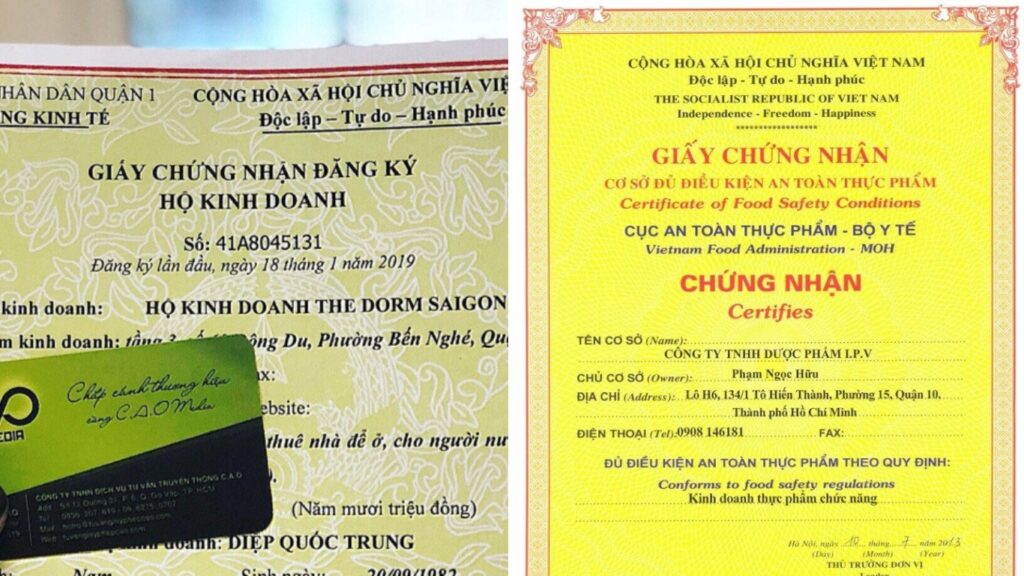 HÂN DÂN QUẬN 1
NG KINH TẾ
CỘNG HÒA XÃ HỘI CHỦ NGHĨA VIỆ
Độc lập – Tự do – Hạnh phúc
GIẤY CHỨNG NHẬN ĐĂNG KÝ
HỘ KINH DOANH
Số: 41A8045131
Đăng ký lần đầu, ngày 18 tháng 1 năm 2019
kinh doanh: HỘ KINH DOANH THE DORM SAIGON
m kinh doanh: tầng 3, Du, Phường Bến Nghé, Qu
ax:
ebsite:
thuê nhà để ở, cho người nư
(Năm mươi triệu đồng)
doanh: DIỆP QUỐC TRUNG
Nam Sinh ngày: 20/09/1982
Chắp cánh thương hiệu
cùng C.A.O Media
EDIA
CÔNG TY TNHH DỊCH VỤ TƯ VẤN TRUYỀN THÔNG C.A.O
CỘNG HÒA XÃ HỘI CHỦ NGHĨA VIỆT NAM
Độc lập - Tự do - Hạnh phúc
THE SOCIALIST REPUBLIC OF VIET NAM
Independence - Freedom - Happiness
******************
GIẤY CHỨNG NHẬN
CƠ SỞ ĐỦ ĐIỀU KIỆN AN TOÀN THỰC PHẨM
Certificate of Food Safety Conditions
CỤC AN TOÀN THỰC PHẨM - BỘ Y TẾ
Vietnam Food Administration - MOH
CHỨNG NHẬN
Certifies
TÊN CƠ SỞ (Name):
CÔNG TY TNHH DƯỢC PHẨM I.P.V
CHỦ CƠ SỞ (Owner): Phạm Ngọc Hữu
ĐỊA CHỈ (Address): Lô H6, 134/1 Tô Hiến Thành, Phường 15, Quận 10,
Thành phố Hồ Chí Minh
ĐIỆN THOẠI (Tel): 0908 146181 FAX:
ĐỦ ĐIỀU KIỆN AN TOÀN THỰC PHẨM THEO QUY ĐỊNH:
Conforms to food safety regulations
Kinh doanh thực phẩm chức năng
Hà Nội, ngày 10 tháng 7 năm 2013
(Day) (Month) (Year)
THỦ TRƯỞNG ĐƠN VỊ
Leader